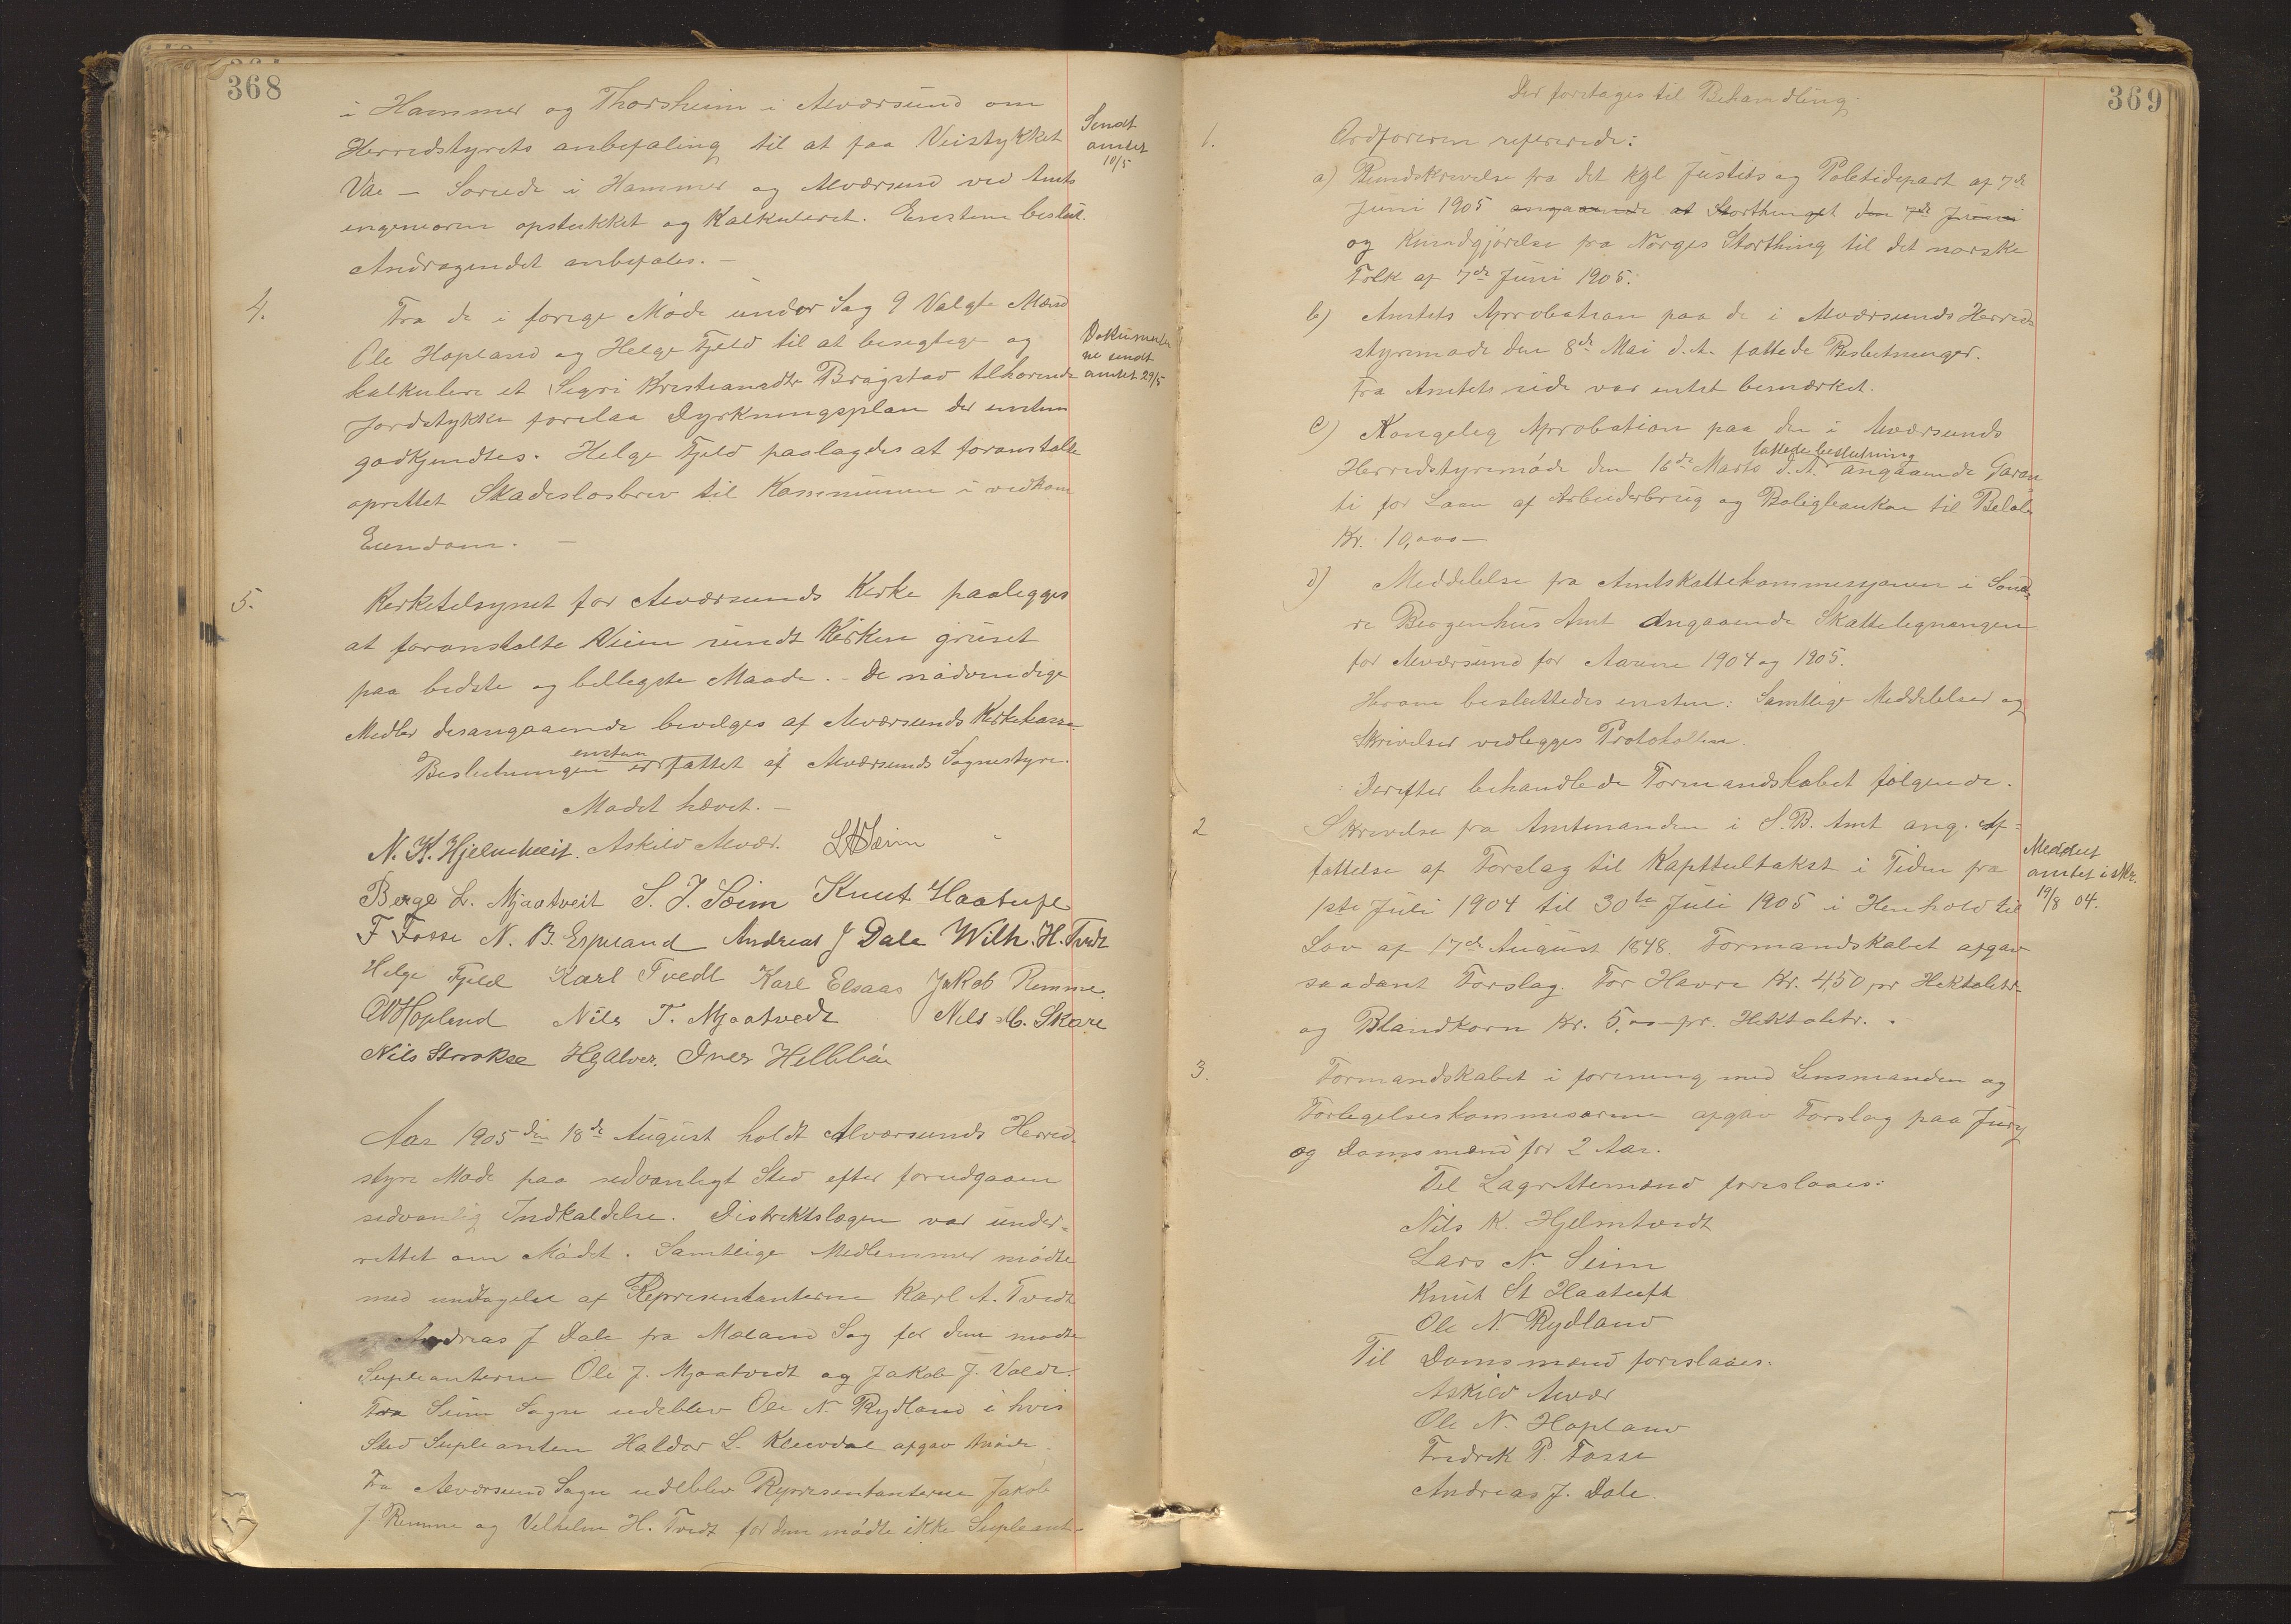 368
i Hammer og Thorsheim i Alværsund om
Herredstyrets anbefaling til at faa Veistykket
Sendt
amtet
10/5
Vaé - Soriede i Hammer og Alværsund ved Amts
ingeniøren opstukket og Kalkuleret. Enstem beslut.
Andragendet anbefales. -
4.
Fra de i forige Møde under Sag 9 Valgte Mænd
Ole Hopland og Helge Fjeld til at besigtige og
Dokumente
ne sendt
amtet 29/5
kalkulere et Sigri Kristiansdtr Bragstad tilhørende
Jordstykke forelaa Dyrkningsplan der enstem
godkjendtes. Helge Fjeld paalagdes at foranstalte
oprettet Skadesløsbrev til Kommunen i vedkom
Eiendom. -
5.
Kirketilsynet for Alværsunds Kirke paalegges
at foranstalte Veien rundt Kirken gruset
paa bedste og billigste Maade. - De nødvendige
Midler desangaaende bevilges af Alværsunds Kirkekasse
enstem
Beslutningen er fattet af Alværsunds Sognestyre.
Mødet hævet. -
N. K. Hjelmtveit. Askild Alvær. L N Seim
Berge L. Mjaatveit S. J. Seim Knut Haatuft
F Fosse N. B. Espeland Andreas J Dale Wilh. H. Tvedt
Helge Fjeld Karl Tvedt Karl Elsaas Jakob Remme.
O N Hopland Nils T. Mjaatvedt Nils M. Skare
Nils Storokse H G Alver. Iver Helllien
Aar 1905 den 18de August holdt Alværsunds Herred-
styre Møde paa sedvanligt Sted efter forudgaaen
sedvanlig Indkaldelse. Distriktslægen var under-
rettet om Mødet. Samtlige Medlemmer mødte
med undtagelse af Repræsentanterne Karl A. Tvedt
Andreas J Dale fra Mæland Sog for dem mødte
Supleanterne Ole J. Mjaatvedt og Jakob J. Valde.
Fra Seim Sogn udeblev Ole N. Rydland i hvis
Sted Supleanten Haldor L. Kleivdal afgav møde.
Fra Alværsund Sogn udeblev Repræsentanterne Jakob
J. Remme og Vilhelm H. Tvedt for dem mødte ikke Supleant-
369
Der foretages til Behandling.
1.
Ordføreren refererede:
a) Rundskrivelse fra det kgl Justits og Politidepart af 7de
Juni 1905 angaaende at Storthinget den 7de Juni
og Kundgjørelse fra Norges Storthing til det norske
Folk af 7de Juni 1905.
b) Amtets Aprobation paa de i Alværsunds Herreds
styremøde den 8de Mai d. A. fattede Beslutninger.
Fra Amtets side var intet bemærket.
c) Kongelig Aprobation paa den i Alværsunds
fattede beslutning
Herredstyremøde den 16de Marts d. A. angaaende Garan
ti for Laan af Arbeiderbrug og Boligbanken til Beløb
Kr. 10,000 -
d) Meddelelse fra Amtskattekommissionen i Sønd-
re Bergenhus Amt angaaende Skatteligningen
for Alværsund for Aarene 1904 og 1905.
Herom besluttedes enstem: Samtlige Meddelelser og
Skrivelser vedlegges Protokollen.
Derefter behandlede Formandskabet følgende.
2
Skrivelse fra Amtmanden i S. B. Amt ang. Af-
fattelse af Forslag til Kapitultakst i Tiden fra
Meddelt
amtet i skr.
19/8 04.
1ste Juli 1904 til 30te Juli 1905 i Henhold til
Lov af 17de August 1848. Formandskabet afgav
saadant Forslag. For Havre Kr. 4,50 pr Hektoliter
og Blandkorn Kr. 5.00 pr. Hektolitr.
3.
Formandskabet i forening med Lensmanden og
Forligelseskommisærene afgav Forslag paa Jury
og Domsmænd for 2 Aar.
Til Lagrettemænd foreslaaes:
Nils K. Hjelmtvedt
Lars N. Seim
Knut St Haatuft
Ole N. Rydland
Til Domsmænd foreslaaes.
Askild Alvær
Ole N. Hopland
Fredrik P. Fosse
Andreas J. Dale.